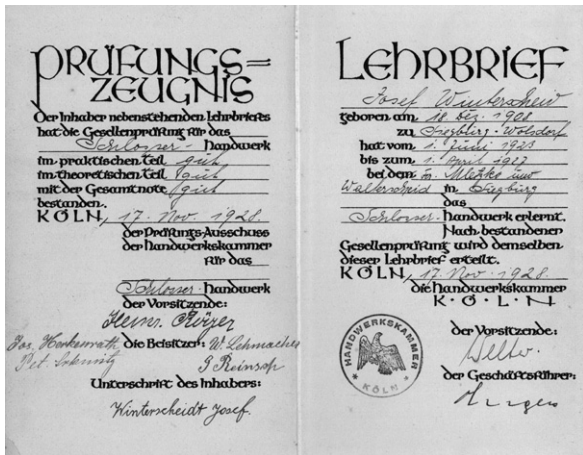 PRÜFUNGS=
ZEUGNIS
Der Inhaber nebenstehenden Lehrbriefes
hat die Gesellenprüfung für das
Schlosser- Handwerk
im praktischen Teil gut
im theoretischen Teil gut
mit der Gesamtnote gut
bestanden.
KÖLN, 17. Nov. 1928.
der Prüfungs-Ausschuss
der Handwerkskammer
für das
Schlosser- Handwerk
der Vorsitzende:
Heinr.
Jos. Herkenrath die Beisitzer: W. Lehmacher
Pet.
Unterschrift des Inhabers:
Winterscheidt Josef.
LEHRBRIEF
Josef Winterscheid
geboren am 18. Dez. 1908
zu Siegburg-Wolsdorf
hat vom 1. Juni 1923
bis zum 1. April 1927
bei dem Metzke und
Walterscheid in Siegburg
das
Schlosser- Handwerk erlernt.
Nach bestandener
Gesellenprüfung wird demselben
dieser Lehrbrief erteilt.
KÖLN, 17. Nov. 1928.
die Handwerkskammer
K·Ö·L·N
der Vorsitzende:
HANDWERKSKAMMER
KÖLN
der Geschäftsführer: